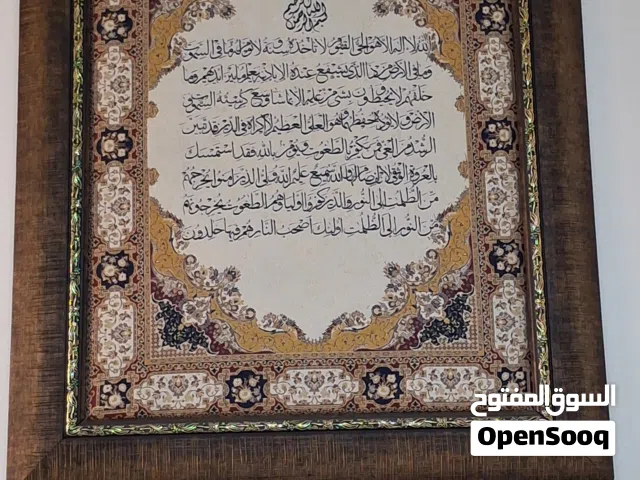 بسم الله الرحمن الرحيم
الله لا اله الا هو الحي القيوم لا تاخذه سنة ولا نوم له ما في السموت
وما في الارض من ذا الذي يشفع عنده الا باذنه يعلم ما بين ايديهم وما
خلفهم ولا يحيطون بشيء من علمه الا بما شاء وسع كرسيه السموت
والارض ولا يوده حفظهما وهو العلي العظيم لا اكراه في الدين قد تبين
الرشد من الغي فمن يكفر بالطغوت ويومن بالله فقد استمسك
بالعروة الوثقى لا انفصام لها والله سميع عليم الله ولي الذين امنوا يخرجهم
من الظلمت الى النور والذين كفروا اولياوهم الطغوت يخرجونهم
من النور الى الظلمت اولئك اصحب النار هم فيها خلدون
السوق المفتوح
OpenSooq